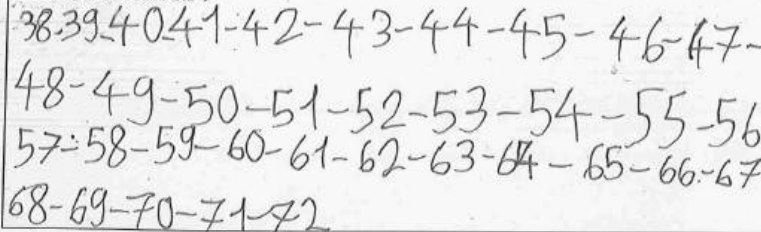 38-39-40-41-42-43-44-45-46-47-
48-49-50-51-52-53-54-55-56
57-58-59-60-61-62-63-64-65-66-67
68-69-70-71-72